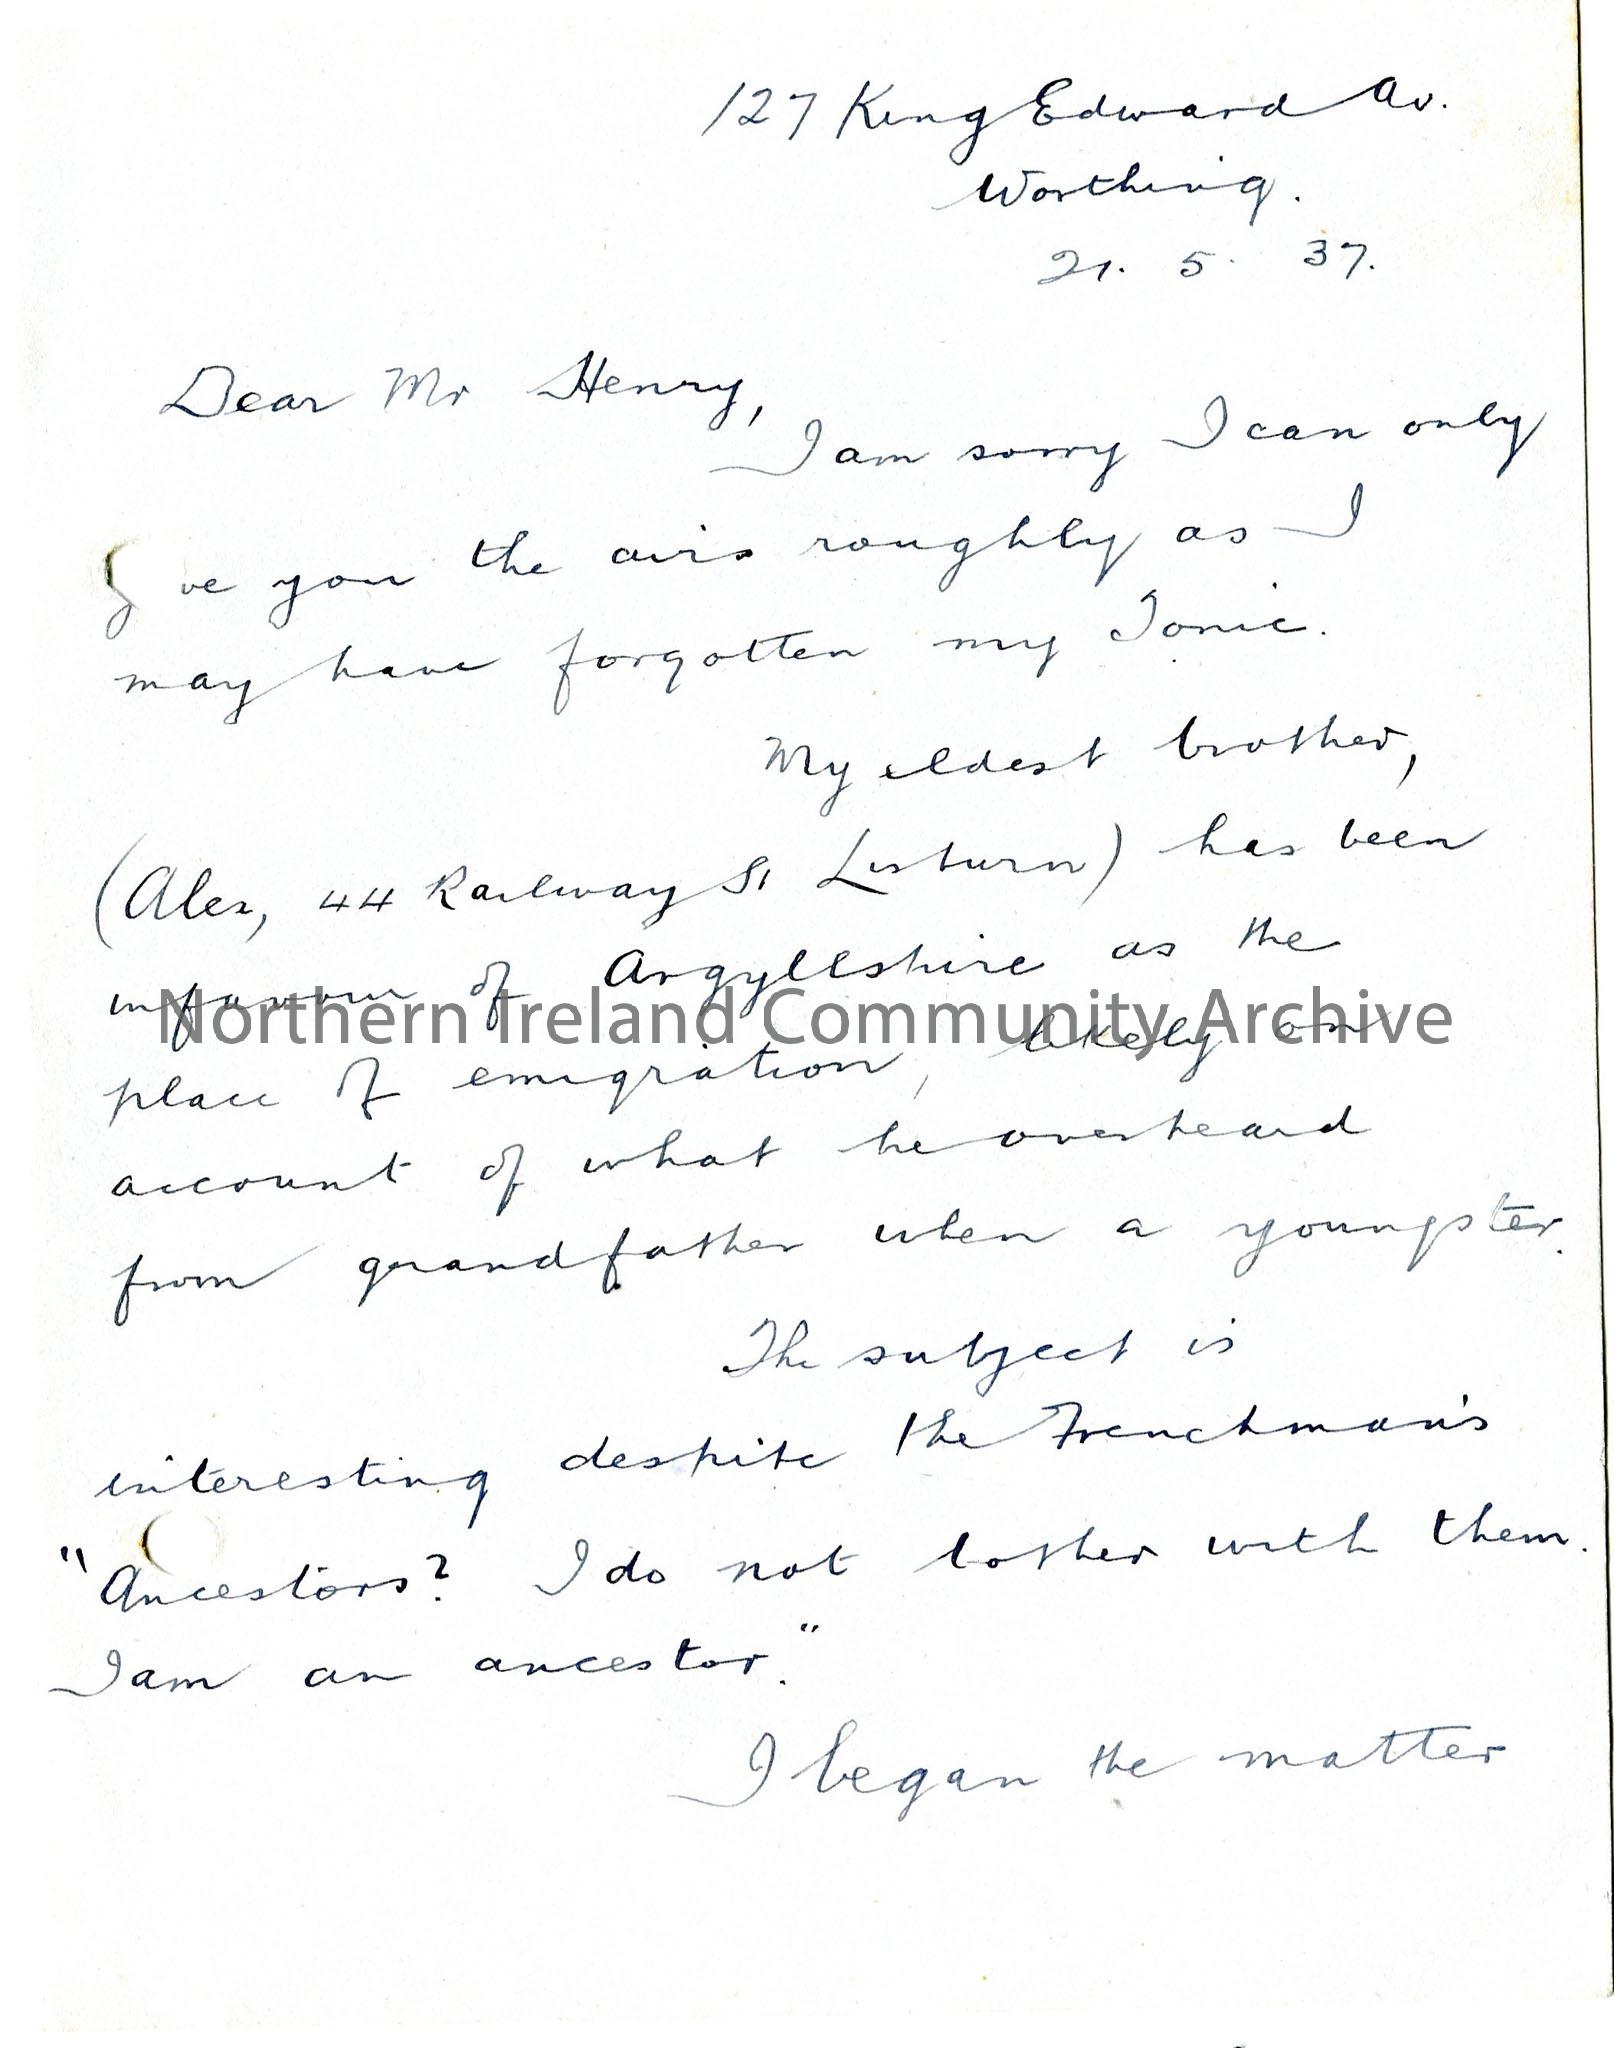 127 King Edward Av.
Worthing.
21. 5. 37.
Dear Mr Henry,
I am sorry I can only
give you the airs roughly as I
may have forgotten my Tonic.
My eldest brother,
(Alex, 44 Railway St Lisburn) has been
in favour of Argyllshire as the
Northern Ireland Community Archive
place of emigration, likely on
account of what he overheard
from grandfather when a youngster.
The subject is
interesting despite the Frenchman's
"Ancestors? I do not bother with them.
I am an ancestor."
I began the matter